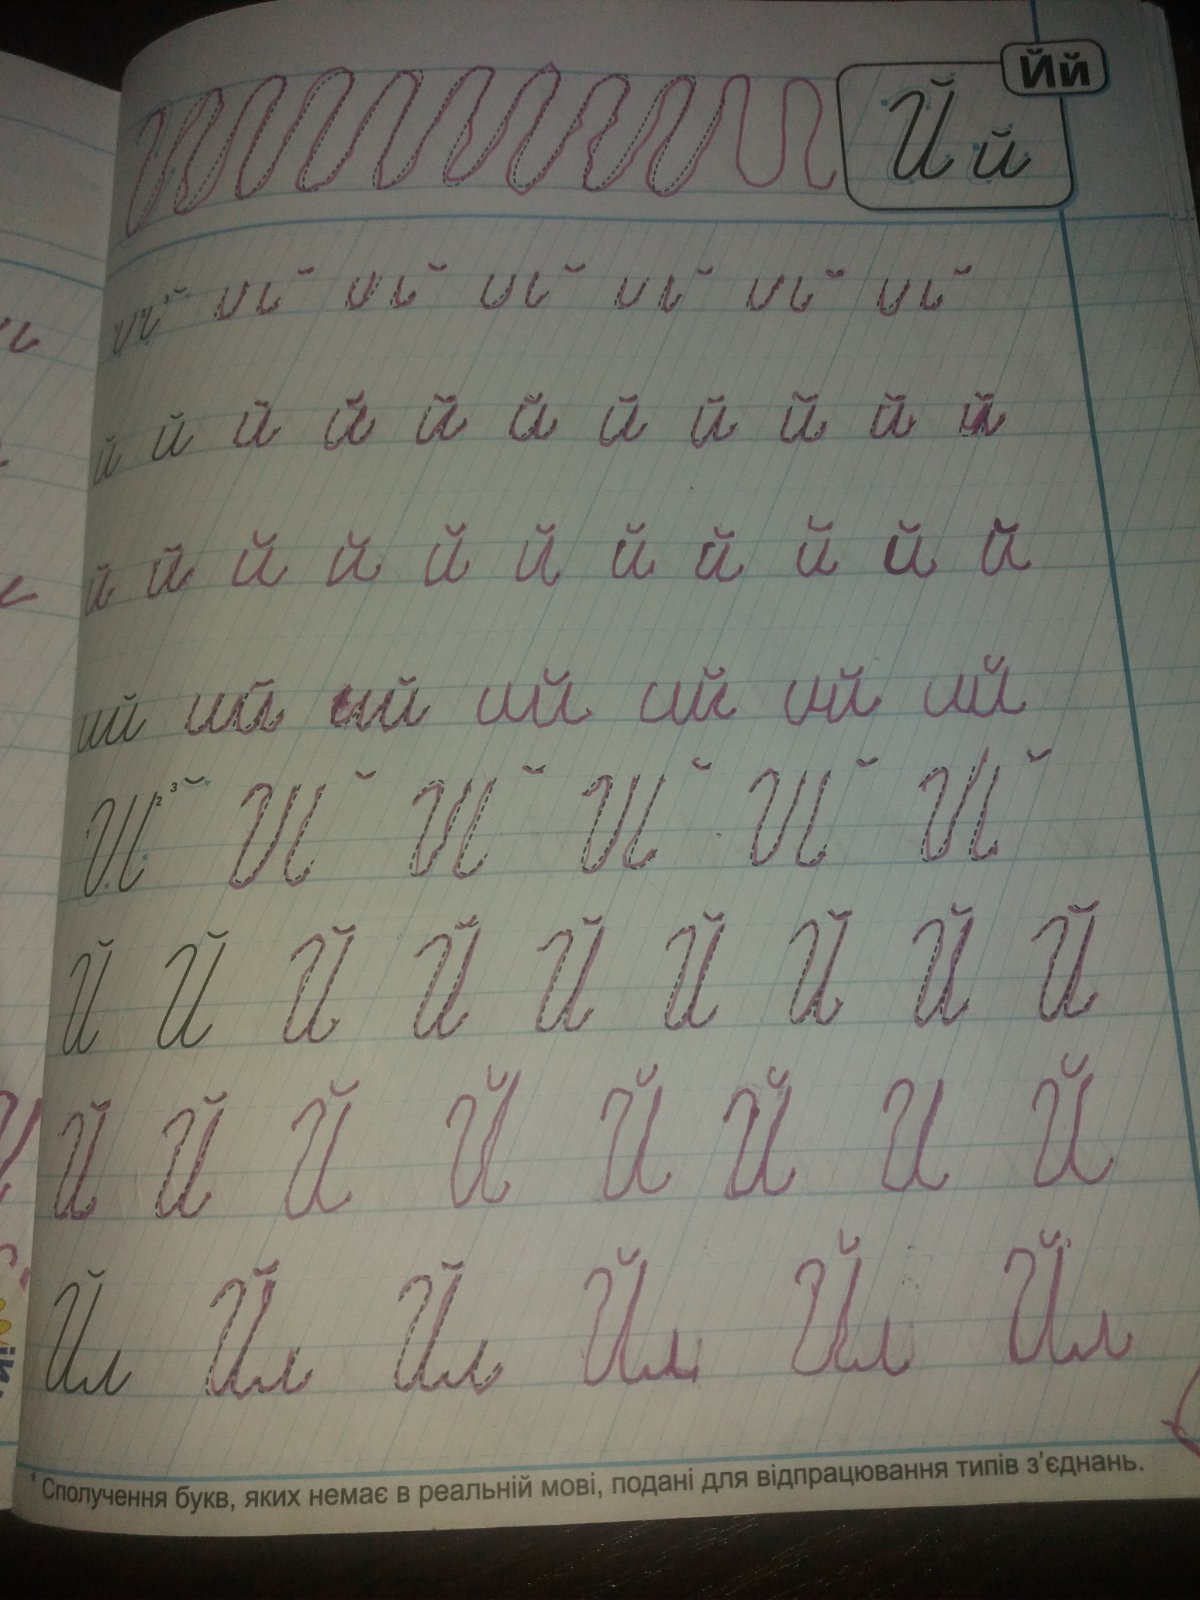 Йй
Й й
й й й й й й й й й й й
й й й й й й й й й й й
ий ий ий ий ий ий ий
2 3
Й Й Й Й Й Й Й Й Й
Й Й Й Й Й Й И Й
Йл Йл Йл Йл Йл Йл
* Сполучення букв, яких немає в реальній мові, подані для відпрацювання типів з’єднань.